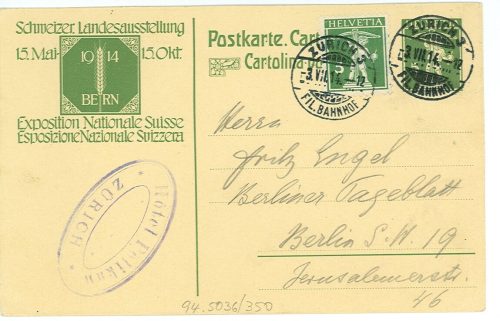 Schweizer. Landesausstellung
15. Mai 15. Okt.
1914
BERN
Exposition Nationale Suisse
Esposizione Nazionale Svizzera
Postkarte. Cart
Cartolina po
HELVETIA
ZÜRICH 3
3.VII.14.
FIL. BAHNHOF
ZÜRICH 3
3.VII.14. 12
FIL. BAHNHOF
Herrn
Fritz Engel
Berliner Tageblatt
Berlin S.W. 19
Jerusalemerstr.
46
Hôtel Pelikan
ZÜRICH
94.5036/350